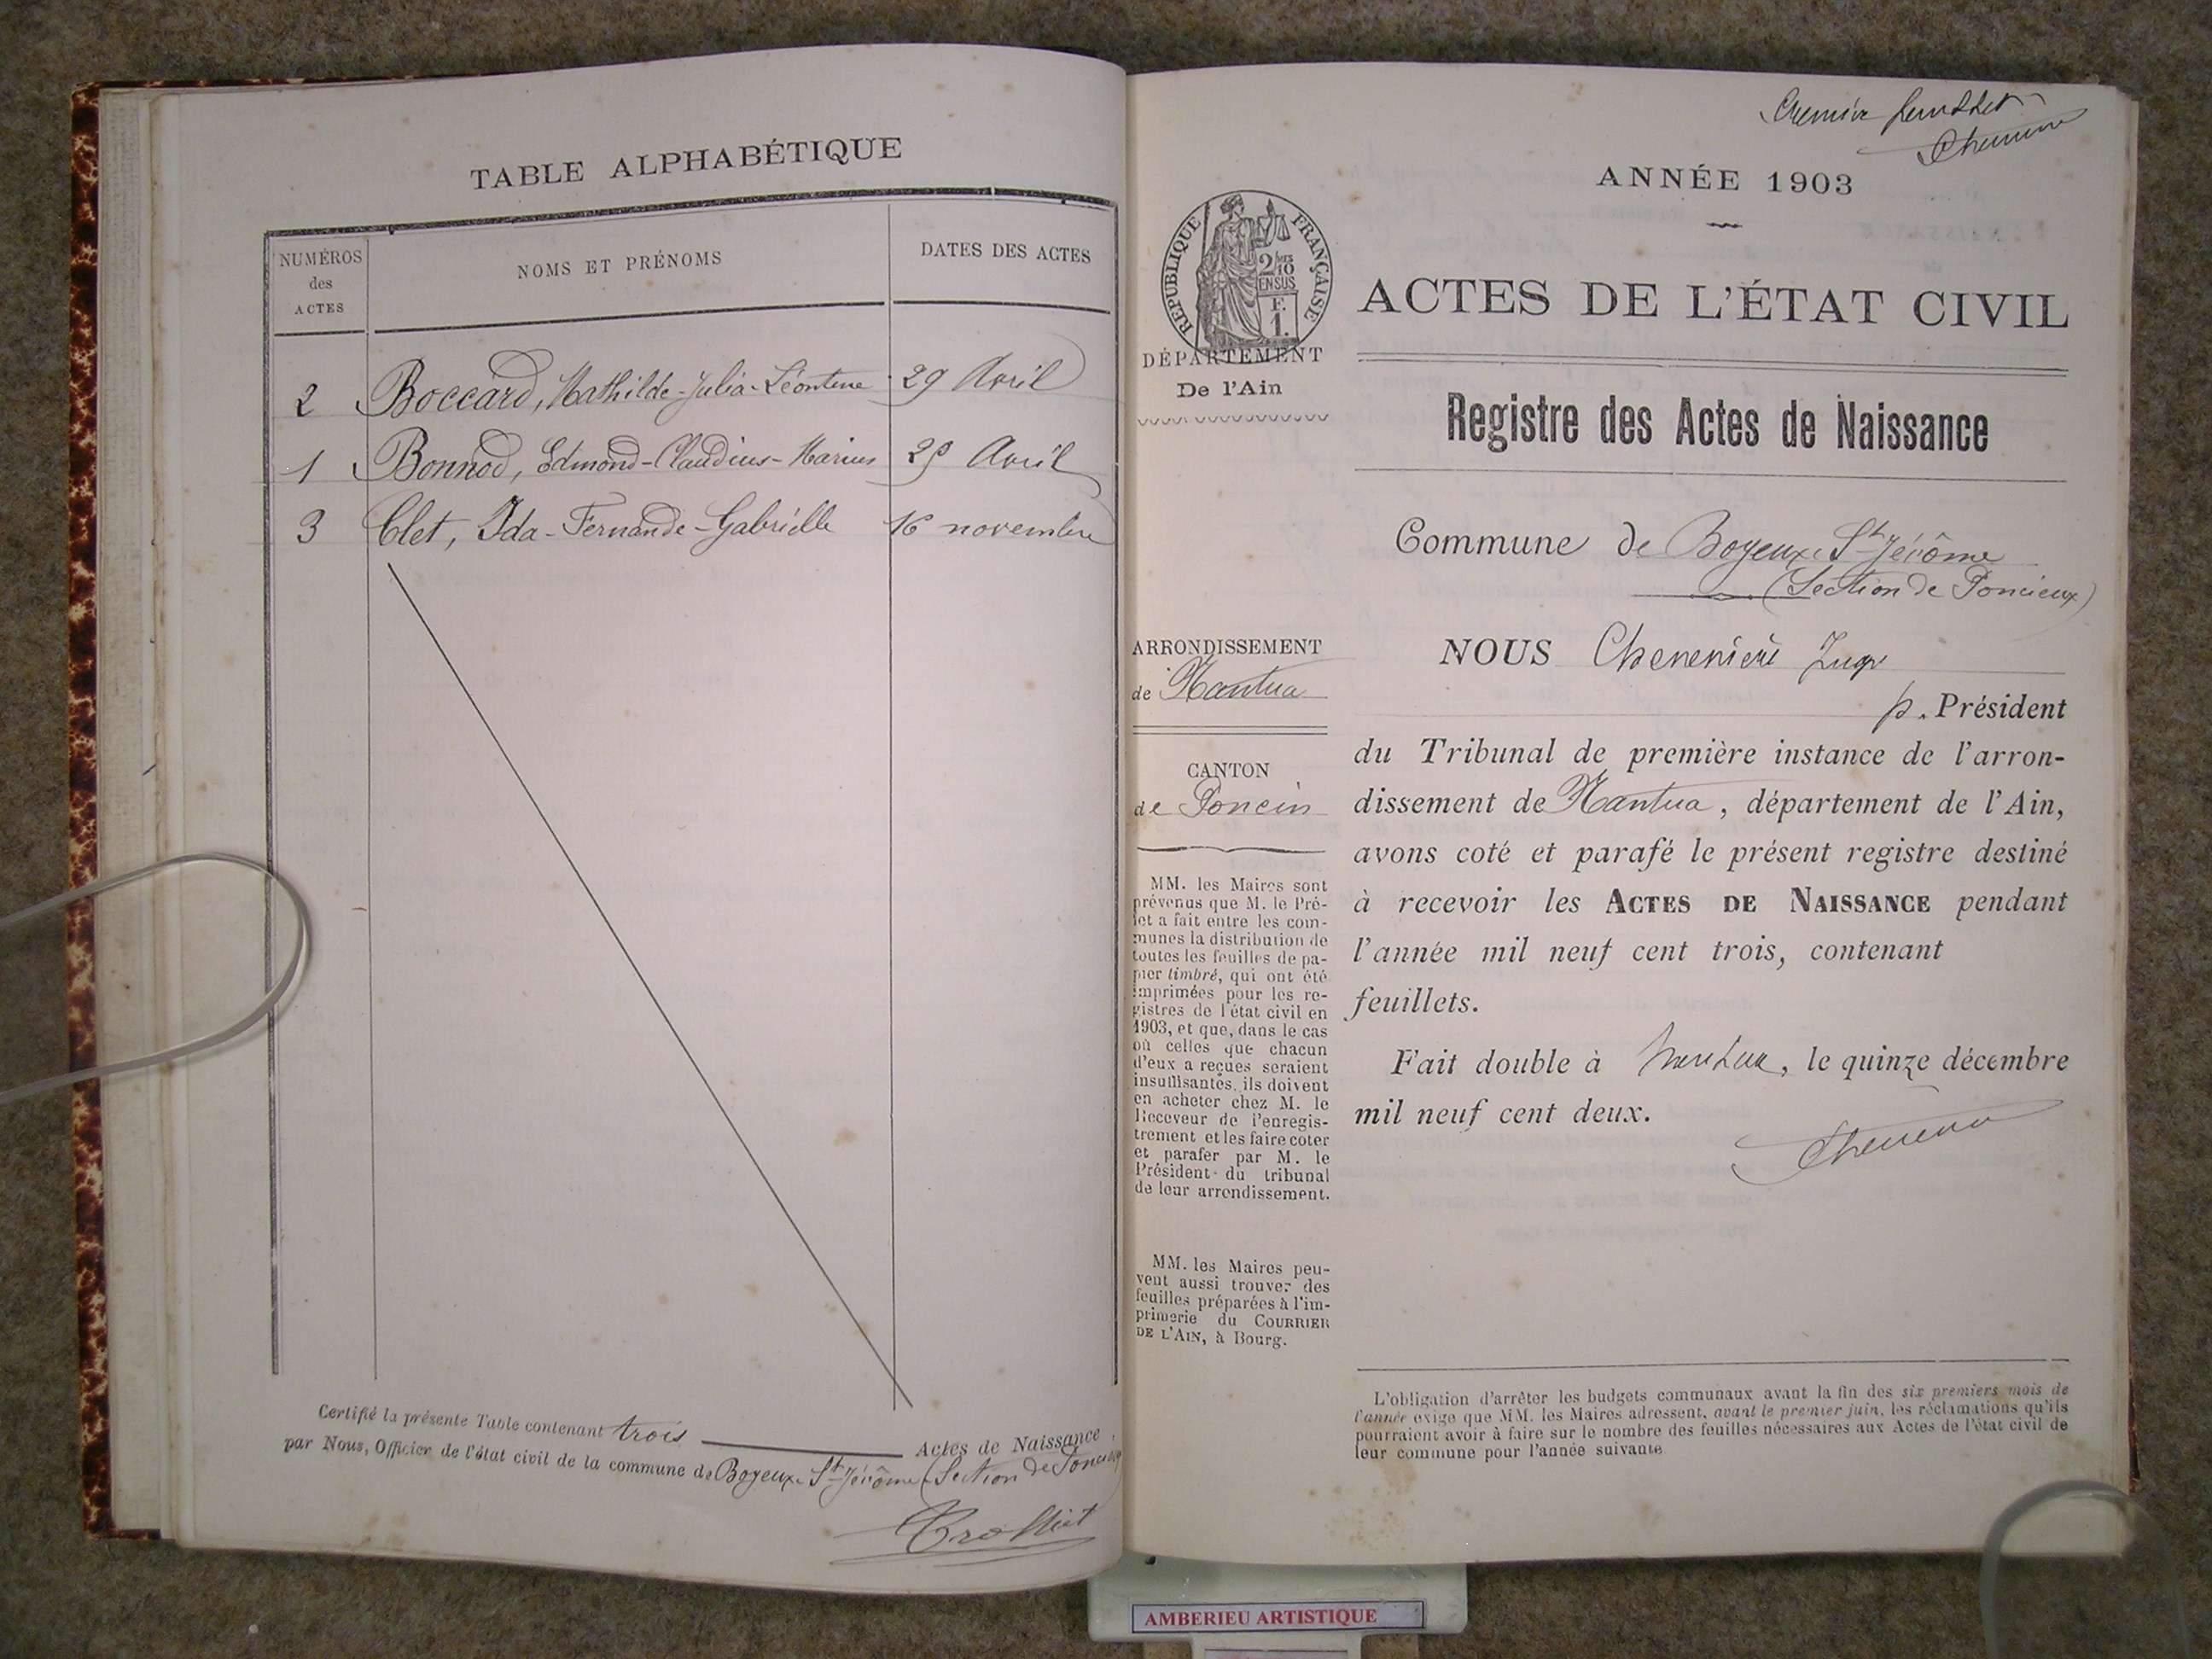 TABLE ALPHABÉTIQUE
NUMÉROS
des
ACTES
NOMS ET PRÉNOMS
DATES DES ACTES
2 Boccard, Mathilde-Julia-Léontine 29 Avril
1 Bonnod, Edmond-Claudius-Marius 29 Avril
3 Clet, Ida-Fernande-Gabrielle 16 novembre
Certifié la présente Table contenant trois Actes de Naissance
par Nous, Officier de l'état civil de la commune de Boyeux-St-Jérôme (Section de Poncieux)
premier feuillet
ANNÉE 1903
RÉPUBLIQUE FRANÇAISE
2/10
EN SUS
F.
1.
ACTES DE L'ÉTAT CIVIL
DÉPARTEMENT
De l'Ain
Registre des Actes de Naissance
Commune de Boyeux-St-Jérôme
(Section de Poncieux)
ARRONDISSEMENT
de Nantua
CANTON
de Poncin
MM. les Maires sont
prévenus que M. le Pré-
fet a fait entre les com-
munes la distribution de
toutes les feuilles de pa-
pier timbré, qui ont été
imprimées pour les re-
gistres de l'état civil en
1903, et que, dans le cas
où celles que chacun
d'eux a reçues seraient
insuffisantes, ils doivent
en acheter chez M. le
Receveur de l'enregis-
trement et les faire coter
et parafer par M. le
Président du tribunal
de leur arrondissement.
MM. les Maires peu-
vent aussi trouver des
feuilles préparées à l'im-
primerie du COURRIER
DE L'AIN, à Bourg.
NOUS Juge
p. Président
du Tribunal de première instance de l'arron-
dissement de Nantua, département de l'Ain,
avons coté et parafé le présent registre destiné
à recevoir les ACTES DE NAISSANCE pendant
l'année mil neuf cent trois, contenant
feuillets.
Fait double à Nantua, le quinze décembre
mil neuf cent deux.
L'obligation d'arrêter les budgets communaux avant la fin des six premiers mois de
l'année exige que MM. les Maires adressent, avant le premier juin, les réclamations qu'ils
pourraient avoir à faire sur le nombre des feuilles nécessaires aux Actes de l'état civil de
leur commune pour l'année suivante
AMBERIEU ARTISTIQUE